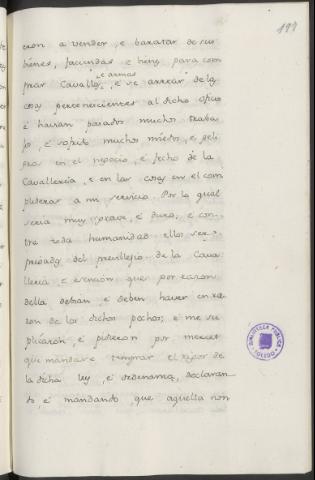 199
eron a vender, e baratar de sus
bienes, faciendas e heng. para com
prar Cavallos, e armas e se arrear de las
cosas pertenescientes al dicho oficio
é havian pasados muchos traba
jos, é sofrido muchos miedos, e peli
gros en el negocio, é fecho de la
Cavalleria, e en las cosas en el com
plideras a mi servicio. Por lo qual
seria muy grave, é duro, e con
tra toda humanidad ellos ser
privados del previllejio de la Cava
lleria e esención que por razon
della debian e deben haver en ra
zon de los dichos pechos; é me su
plicaron, é pidieron por merced
que mandase temprar el rigor de
la dicha ley, é ordenanza, declaran
do, é mandando que aquella non
BIBLIOTECA PUBLICA
TOLEDO